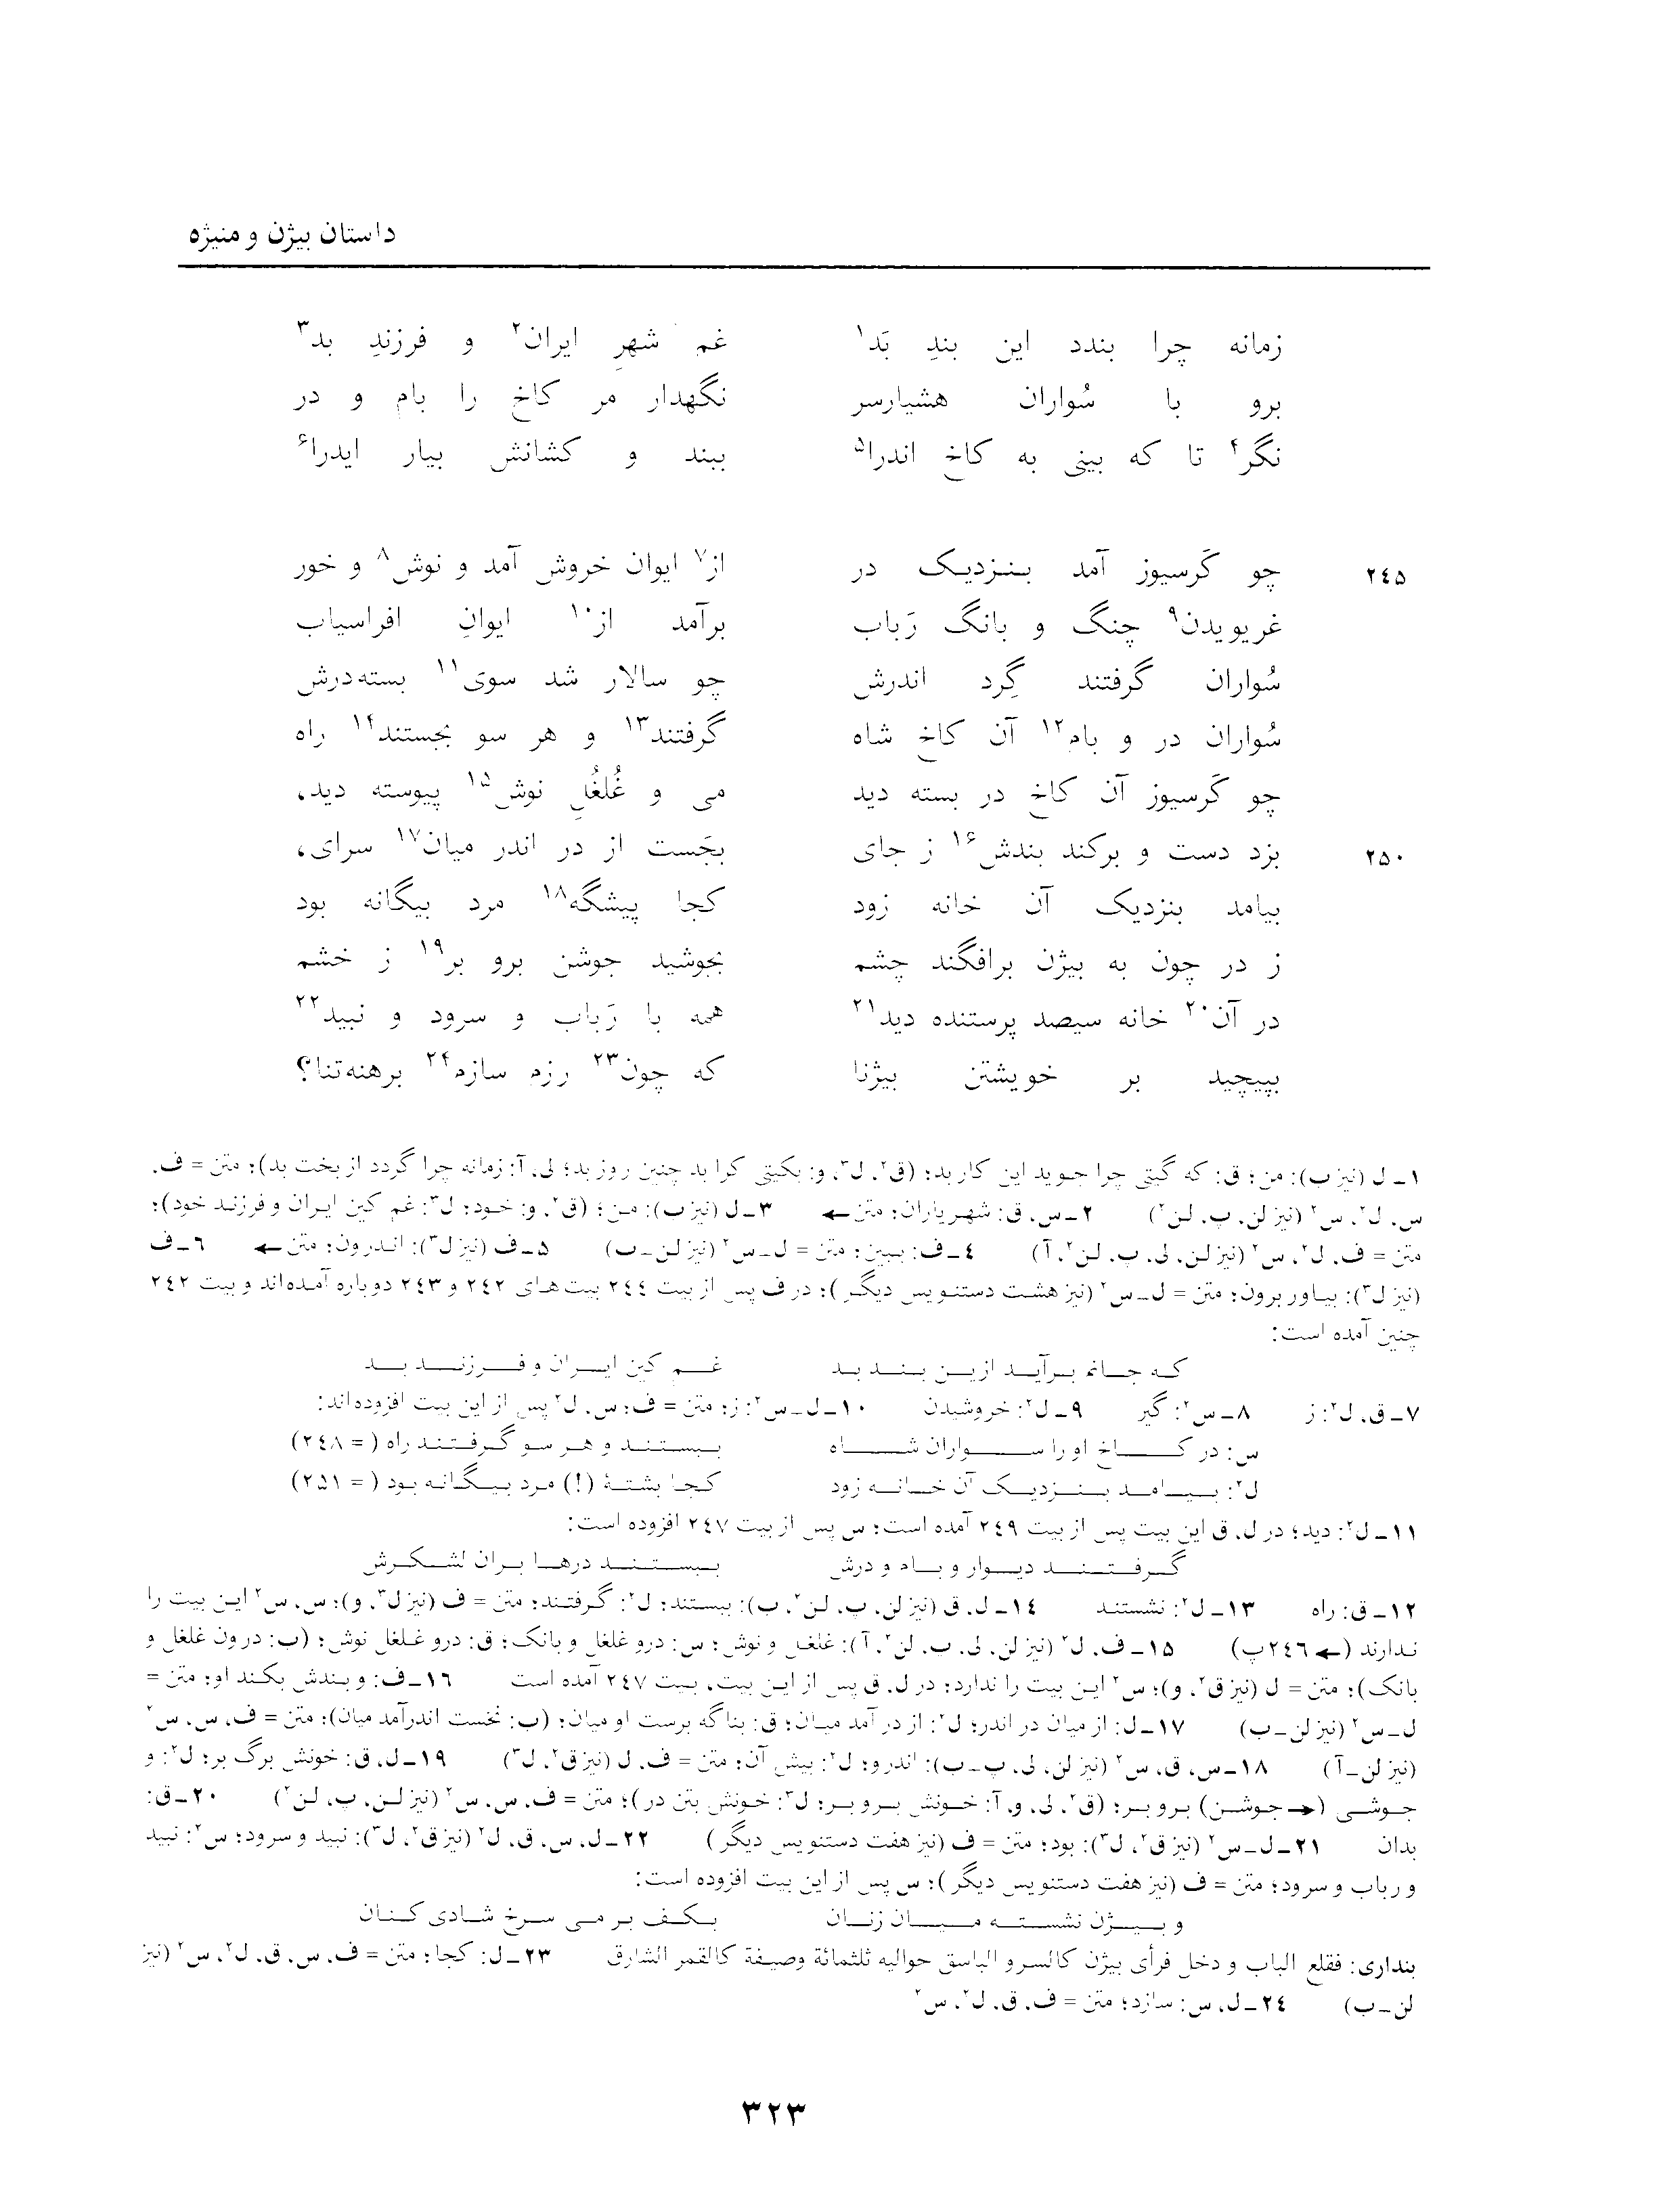 داستان بیژن و منیژه
زمانه چرا بندد این بندِ بَد۱ غم شهرِ ایران۲ و فرزندِ بد۳
برو با سُواران هشیارسر نگهدار مر کاخ را بام و در
نگر۴ تا که بینی به کاخ اندرا۵ ببند و کشانش بیار ایدرا۶
۲۴۵ چو گَرسیوز آمد بنزدیک در از۷ ایوان خروش آمد و نوش۸ و خور
غریویدن۹ چنگ و بانگ رَباب برآمد از۱۰ ایوانِ افراسیاب
سُواران گرفتند گِرد اندرش چو سالار شد سوی۱۱ بسته‌درش
سُواران در و بام۱۲ آن کاخ شاه گرفتند۱۳ و هر سو بجستند۱۴ راه
چو گَرسیوز آن کاخ در بسته دید می و غُلغُلِ نوش۱۵ پیوسته دید،
۲۵۰ بزد دست و برکند بندش۱۶ ز جای بجَست از در اندر میان۱۷ سرای،
بیامد بنزدیک آن خانه زود کجا پیشگه۱۸ مرد بیگانه بود
ز در چون به بیژن برافگند چشم بجوشید جوشن برو بر۱۹ ز خشم
در آن۲۰ خانه سیصد پرستنده دید۲۱ همه با رَباب و سرود و نبید۲۲
بپیچید بر خویشتن بیژنا که چون۲۳ رزم سازم۲۴ برهنه‌تنا؟
۱ـ ل (نیز ب): من؛ ق: که گیتی چرا جوید این کار بد؛ (ق۲، ل۳، و: بگیتی کرا بد چنین روز بد؛ لی، آ: زمانه چرا گردد از بخت بد)؛ متن = ف،
س، ل۲، س۲ (نیز لن، پ، لن۲) ۲ـ س، ق: شهریاران؛ متن← ۳ـ ل (نیز ب): من؛ (ق۲، و: خود؛ ل۳: غم کین ایران و فرزند خود)؛
متن = ف، ل۲، س۲ (نیز لن، لی، پ، لن۲، آ) ۴ـ ف: ببین؛ متن = ل ـ س۲ (نیز لن ـ ب) ۵ـ ف (نیز ل۳): اندرون؛ متن← ۶ـ ف
(نیز ل۳): بیاور برون؛ متن = ل ـ س۲ (نیز هشت دستنویس دیگر)؛ در ف پس از بیت ۲۴۴ بیت‌های ۲۴۲ و ۲۴۳ دوباره آمده‌اند و بیت ۲۴۲
چنین آمده است:
که جانم برآید ازین بند بد غم کین ایران و فرزند بد
۷ـ ق، ل۲: ز ۸ـ س۲: گیر ۹ـ ل۲: خروشیدن ۱۰ـ ل ـ س۲: ز؛ متن = ف؛ س، ل۲ پس از این بیت افزوده‌اند:
س: در کاخ او را سواران شاه ببستند و هر سو گرفتند راه (= ۲۴۸)
ل۲: بیامد بنزدیک آن خانه زود کجا بشتهٔ (!) مرد بیگانه بود (= ۲۵۱)
۱۱ـ ل۲: دید؛ در ل، ق این بیت پس از بیت ۲۴۹ آمده است؛ س پس از بیت ۲۴۷ افزوده است:
گرفتند دیوار و بام و درش ببستند درها بران لشکرش
۱۲ـ ق: راه ۱۳ـ ل۲: نشستند ۱۴ـ ل، ق (نیز لن، پ، لن۲، ب): ببستند؛ ل۲: گرفتند؛ متن = ف (نیز ل۳، و)؛ س، س۲ این بیت را
ندارند (← ۲۴۶پ) ۱۵ـ ف، ل۲ (نیز لن، لی، پ، لن۲، آ): غلغل و نوش؛ س: درو غلغل و بانگ؛ ق: درو غلغل نوش؛ (ب: درون غلغل و
بانگ)؛ متن = ل (نیز ق۲، و)؛ س۲ این بیت را ندارد؛ در ل، ق پس از این بیت، بیت ۲۴۷ آمده است ۱۶ـ ف: و بندش بکند او؛ متن =
ل ـ س۲ (نیز لن ـ ب) ۱۷ـ ل: از میان در اندر؛ ل۲: از در آمد میان؛ ق: بناگه برست او میان؛ (ب: نخست اندرآمد میان)؛ متن = ف، س، س۲
(نیز لن ـ آ) ۱۸ـ س، ق، س۲ (نیز لن، لی، پ ـ ب): اندرو؛ ل۲: پیش آن؛ متن = ف، ل (نیز ق۲، ل۳) ۱۹ـ ل، ق: خونش برگ بر؛ ل۲: و
جوشی (← جوشن) برو بر؛ (ق۲، لی، و، آ: خونش برو بر؛ ل۳: خونش بتن در)؛ متن = ف، س، س۲ (نیز لن، پ، لن۲) ۲۰ـ ق:
بدان ۲۱ـ ل ـ س۲ (نیز ق۲، ل۳): بود؛ متن = ف (نیز هفت دستنویس دیگر) ۲۲ـ ل، س، ق، ل۲ (نیز ق۲، ل۳): نبید و سرود؛ س۲: نبید
و رباب و سرود؛ متن = ف (نیز هفت دستنویس دیگر)؛ س پس از این بیت افزوده است:
و بیژن نشسته میان زنان بکف بر می سرخ شادی کنان
بنداری: فقلع الباب و دخل فرأی بیژن کالسرو الباسق حوالیه ثلثمائة وصیفة کالقمر الشارق ۲۳ـ ل: کجا؛ متن = ف، س، ق، ل۲، س۲ (نیز
لن ـ ب) ۲۴ـ ل، س: سازد؛ متن = ف، ق، ل۲، س۲
۳۲۳